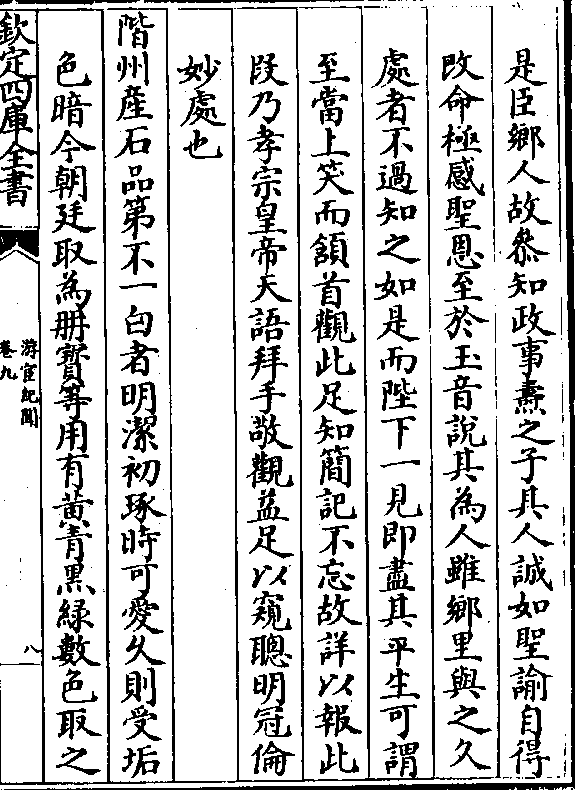 是臣鄉人故叅知政事燾之子具人誠如聖諭自得
改命極感聖恩至於玉音說其為人雖鄉里與之久
處者不過知之如是而陛下一見即盡其平生可謂
至當上笑而頷首觀此足知簡記不忘故詳以報此
段乃孝宗皇帝天語拜手敬觀益足以窺聰明冠倫
妙處也
階州産石品第不一白者明潔初琢時可愛久則受垢
色暗今朝廷取為册寳等用有黃青黑綠數色取之
欽定四庫全書
游宦紀聞
卷九
八